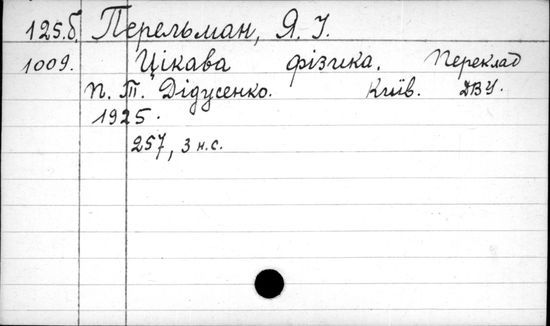 125.б. Перельман, Я. І.
1009. Цікава фізика. Переклад
П. Т. Дідусенко. Київ. ДВУ.
1925.
257, 3 н.с.